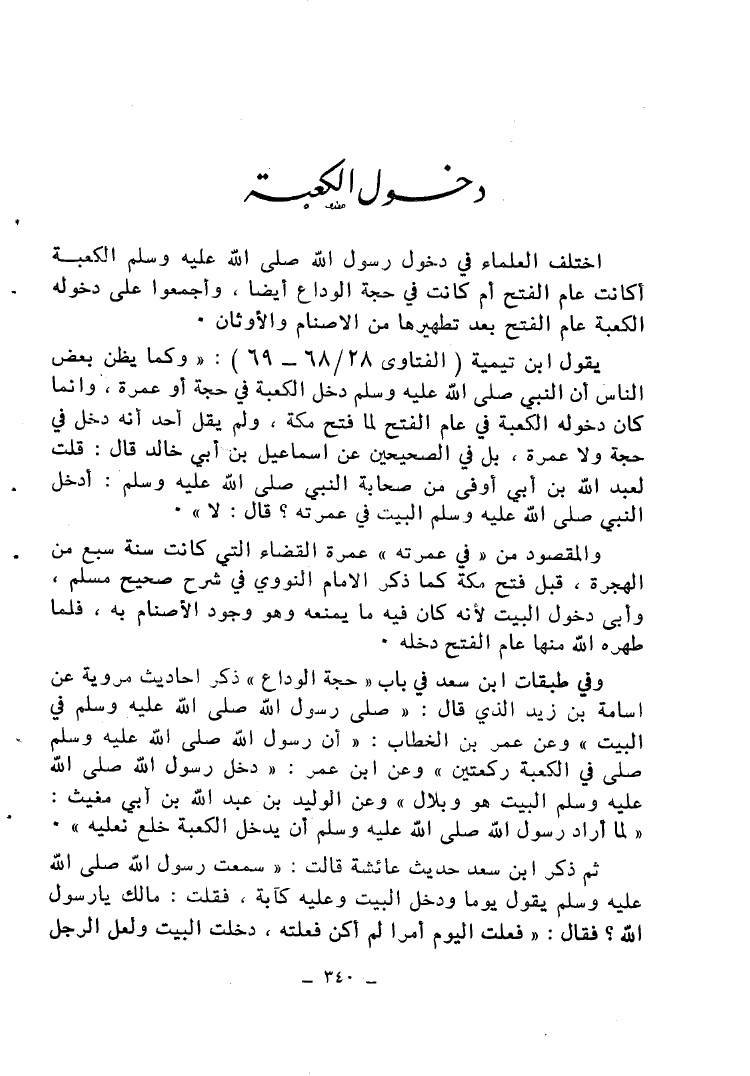 دخول الكعبة
اختلف العلماء في دخول رسول الله صلى الله عليه وسلم الكعبة
أكانت عام الفتح أم كانت في حجة الوداع أيضا ، وأجمعوا على دخوله
الكعبة عام الفتح بعد تطهيرها من الاصنام والأوثان ٠
يقول ابن تيمية ( الفتاوى ٦٨/٢٨ ــ ٦٩ ) : « وكما يظن بعض
الناس أن النبي صلى الله عليه وسلم دخل الكعبة في حجة أو عمرة ، وانما
كان دخوله الكعبة في عام الفتح لما فتح مكة ، ولم يقل أحد أنه دخل في
حجة ولا عمرة ، بل في الصحيحين عن اسماعيل بن أبي خالد قال : قلت
لعبد الله بن أبي أوفى من صحابة النبي صلى الله عليه وسلم : أدخل
النبي صلى الله عليه وسلم البيت في عمرته ؟ قال : لا » ٠
والمقصود من « في عمرته » عمرة القضاء التي كانت سنة سبع من
الهجرة ، قبل فتح مكة كما ذكر الامام النووي في شرح صحيح مسلم ،
وأبى دخول البيت لأنه كان فيه ما يمنعه وهو وجود الأصنام به ، فلما
طهره الله منها عام الفتح دخله ٠
وفي طبقات ابن سعد في باب « حجة الوداع » ذكر احاديث مروية عن
اسامة بن زيد الذي قال : « صلى رسول الله صلى الله عليه وسلم في
البيت » وعن عمر بن الخطاب : « أن رسول الله صلى الله عليه وسلم
صلى في الكعبة ركعتين » وعن ابن عمر : « دخل رسول الله صلى الله
عليه وسلم البيت هو وبلال » وعن الوليد بن عبد الله بن أبي مغيث :
« لما أراد رسول الله صلى الله عليه وسلم أن يدخل الكعبة خلع نعليه » ٠
ثم ذكر ابن سعد حديث عائشة قالت : « سمعت رسول الله صلى الله
عليه وسلم يقول يوما ودخل البيت وعليه كآبة ، فقلت : مالك يارسول
الله ؟ فقال : « فعلت اليوم أمرا لم أكن فعلته ، دخلت البيت ولعل الرجل
ــ ٣٤٠ ــ